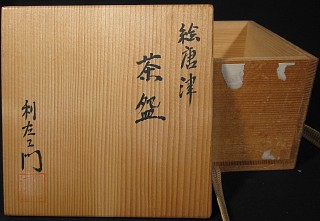 絵唐津
茶盌
利左エ門